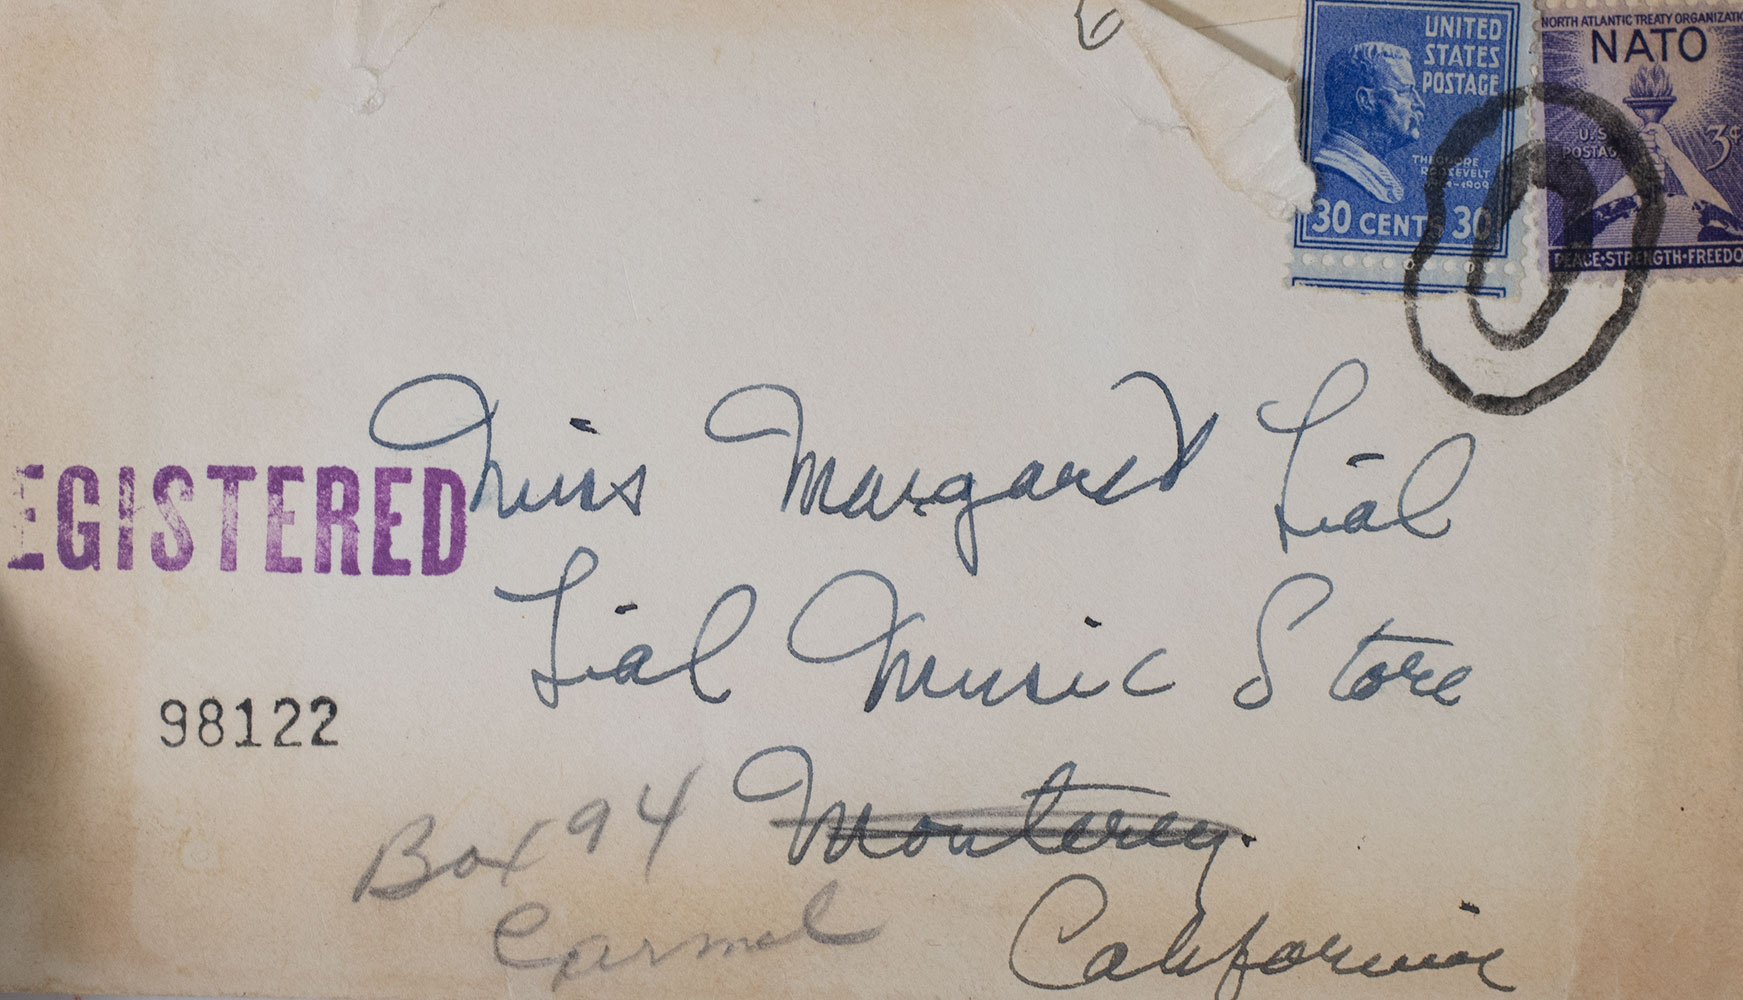 UNITED
STATES
POSTAGE
THEODORE
ROOSEVELT
-1909
30 CENTS 30
NORTH ATLANTIC TREATY ORGANIZATI
NATO
U.S.
POSTAG
3¢
PEACE·STRENGTH·FREEDO
Miss Margaret Lial
EGISTERED
Lial Music Store
98122
Monterey.
Box 94
Carmel
California